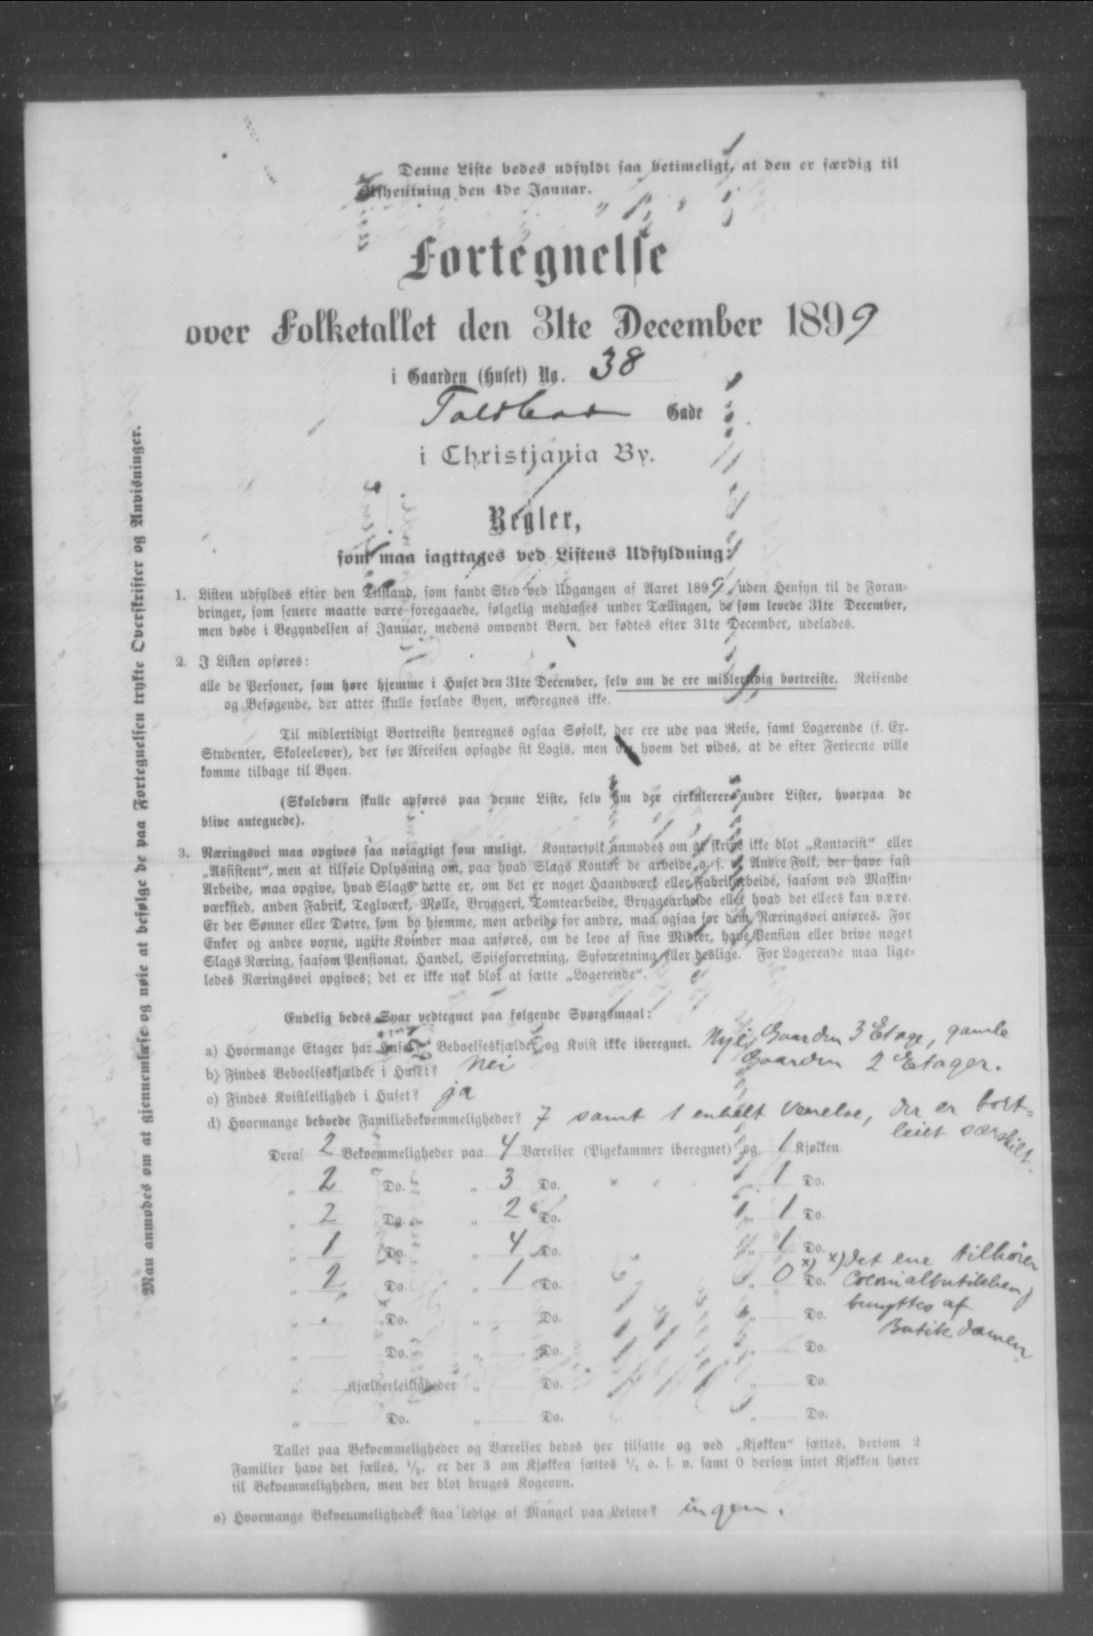 Denne Liste bedes udfyldt saa betimeligt, at den er færdig til
Afhentning den 4de Januar.
Fortegnelse
over Folketallet den 31te December 1899
i Gaarden (Huset) No. 38
Toldbod Gade
i Christjania By.
Regler,
som maa iagttages ved Listens Udfyldning:
1. Listen udfyldes efter den Tilstand, som fandt Sted ved Udgangen af Aaret 1899, uden Hensyn til de Foran-
dringer, som senere maatte være foregaaede, følgelig medtages under Tællingen, de som levede 31te December,
men døde i Begyndelsen af Januar, medens omvendt Børn, der fødtes efter 31te December, udelades.
2. I Listen opføres:
alle de Personer, som høre hjemme i Huset den 31te December, selv om de ere midlertidig bortreiste. Reisende
og Besøgende, der atter skulle forlade Byen, medregnes ikke.
Til midlertidigt Bortreiste henregnes ogsaa Søfolk, der ere ude paa Reise, samt Logerende (f. Ex.
Studenter, Skoleelever), der før Afreisen opsagde sit Logis, men om hvem det vides, at de efter Ferierne ville
komme tilbage til Byen.
(Skolebørn skulle opføres paa denne Liste, selv om der cirkulerer andre Lister, hvorpaa de
blive antegnede).
3. Næringsvei maa opgives saa nøiagtigt som muligt. Kontorfolk anmodes om at skrive ikke blot „Kontorist“ eller
„Assistent“, men at tilføie Oplysning om, paa hvad Slags Kontor de arbeide o. s. v. Andre Folk, der have fast
Arbeide, maa opgive, hvad Slags dette er, om det er noget Haandværk eller Fabrikarbeide, saasom ved Maskin-
værksted, anden Fabrik, Teglværk, Mølle, Bryggeri, Tomtearbeide, Bryggearbeide eller hvad det ellers kan være.
Er der Sønner eller Døtre, som bo hjemme, men arbeide for andre, maa ogsaa for dem Næringsvei anføres. For
Enker og andre voxne, ugifte Kvinder maa anføres, om de leve af sine Midler, have Pension eller drive noget
Slags Næring, saasom Pensionat, Handel, Spiseforretning, Syforretning eller deslige. For Logerende maa lige-
ledes Næringsvei opgives; det er ikke nok blot at sætte „Logerende“.
Endelig bedes Svar vedtegnet paa følgende Spørgsmaal:
a) Hvormange Etager har Huset? Beboelseskjælder og Kvist ikke iberegnet. Nye Gaarden 3 Etage, gamle
Gaarden 2 Etager.
b) Findes Beboelseskjælder i Huset? Nei
c) Findes Kvistleilighed i Huset? ja
d) Hvormange beboede Familiebekvemmeligheder? 7 samt 1 enkelt Værelse, der er bort-
leiet særskilt.
Deraf 2 Bekvemmeligheder paa 4 Værelser (Pigekammer iberegnet) og 1 Kjøkken
„ 2 Do. „ 3 Do. „ 1 Do.
„ 2 Do. „ 2 Do. „ 1 Do.
„ 1 Do. „ 4 Do. „ 1 Do.
„ 2 Do. „ 1 Do. „ 0 x) Do.
x) det ene tilhører
Colonialbutikken,
benyttes af
Butikdamen
„ Do. „ Do. „ Do.
„ Do. „ Do. „ Do.
„ Kjælderleiligheder „ Do. „ Do.
„ Do. „ Do. „ Do.
Tallet paa Bekvemmeligheder og Værelser bedes her tilsatte og ved „Kjøkken“ sættes, dersom 2
Familier have det fælles, 1/2, er der 3 om Kjøkken sættes 1/3 o. s. v. samt 0 dersom intet Kjøkken hører
til Bekvemmeligheden, men der blot bruges Kogeovn.
e) Hvormange Bekvemmeligheder staa ledige af Mangel paa Leiere? ingen.
Man anmodes om at gjennemlæse og nøie at befølge de paa Fortegnelsen trykte Overskrifter og Anvisninger.